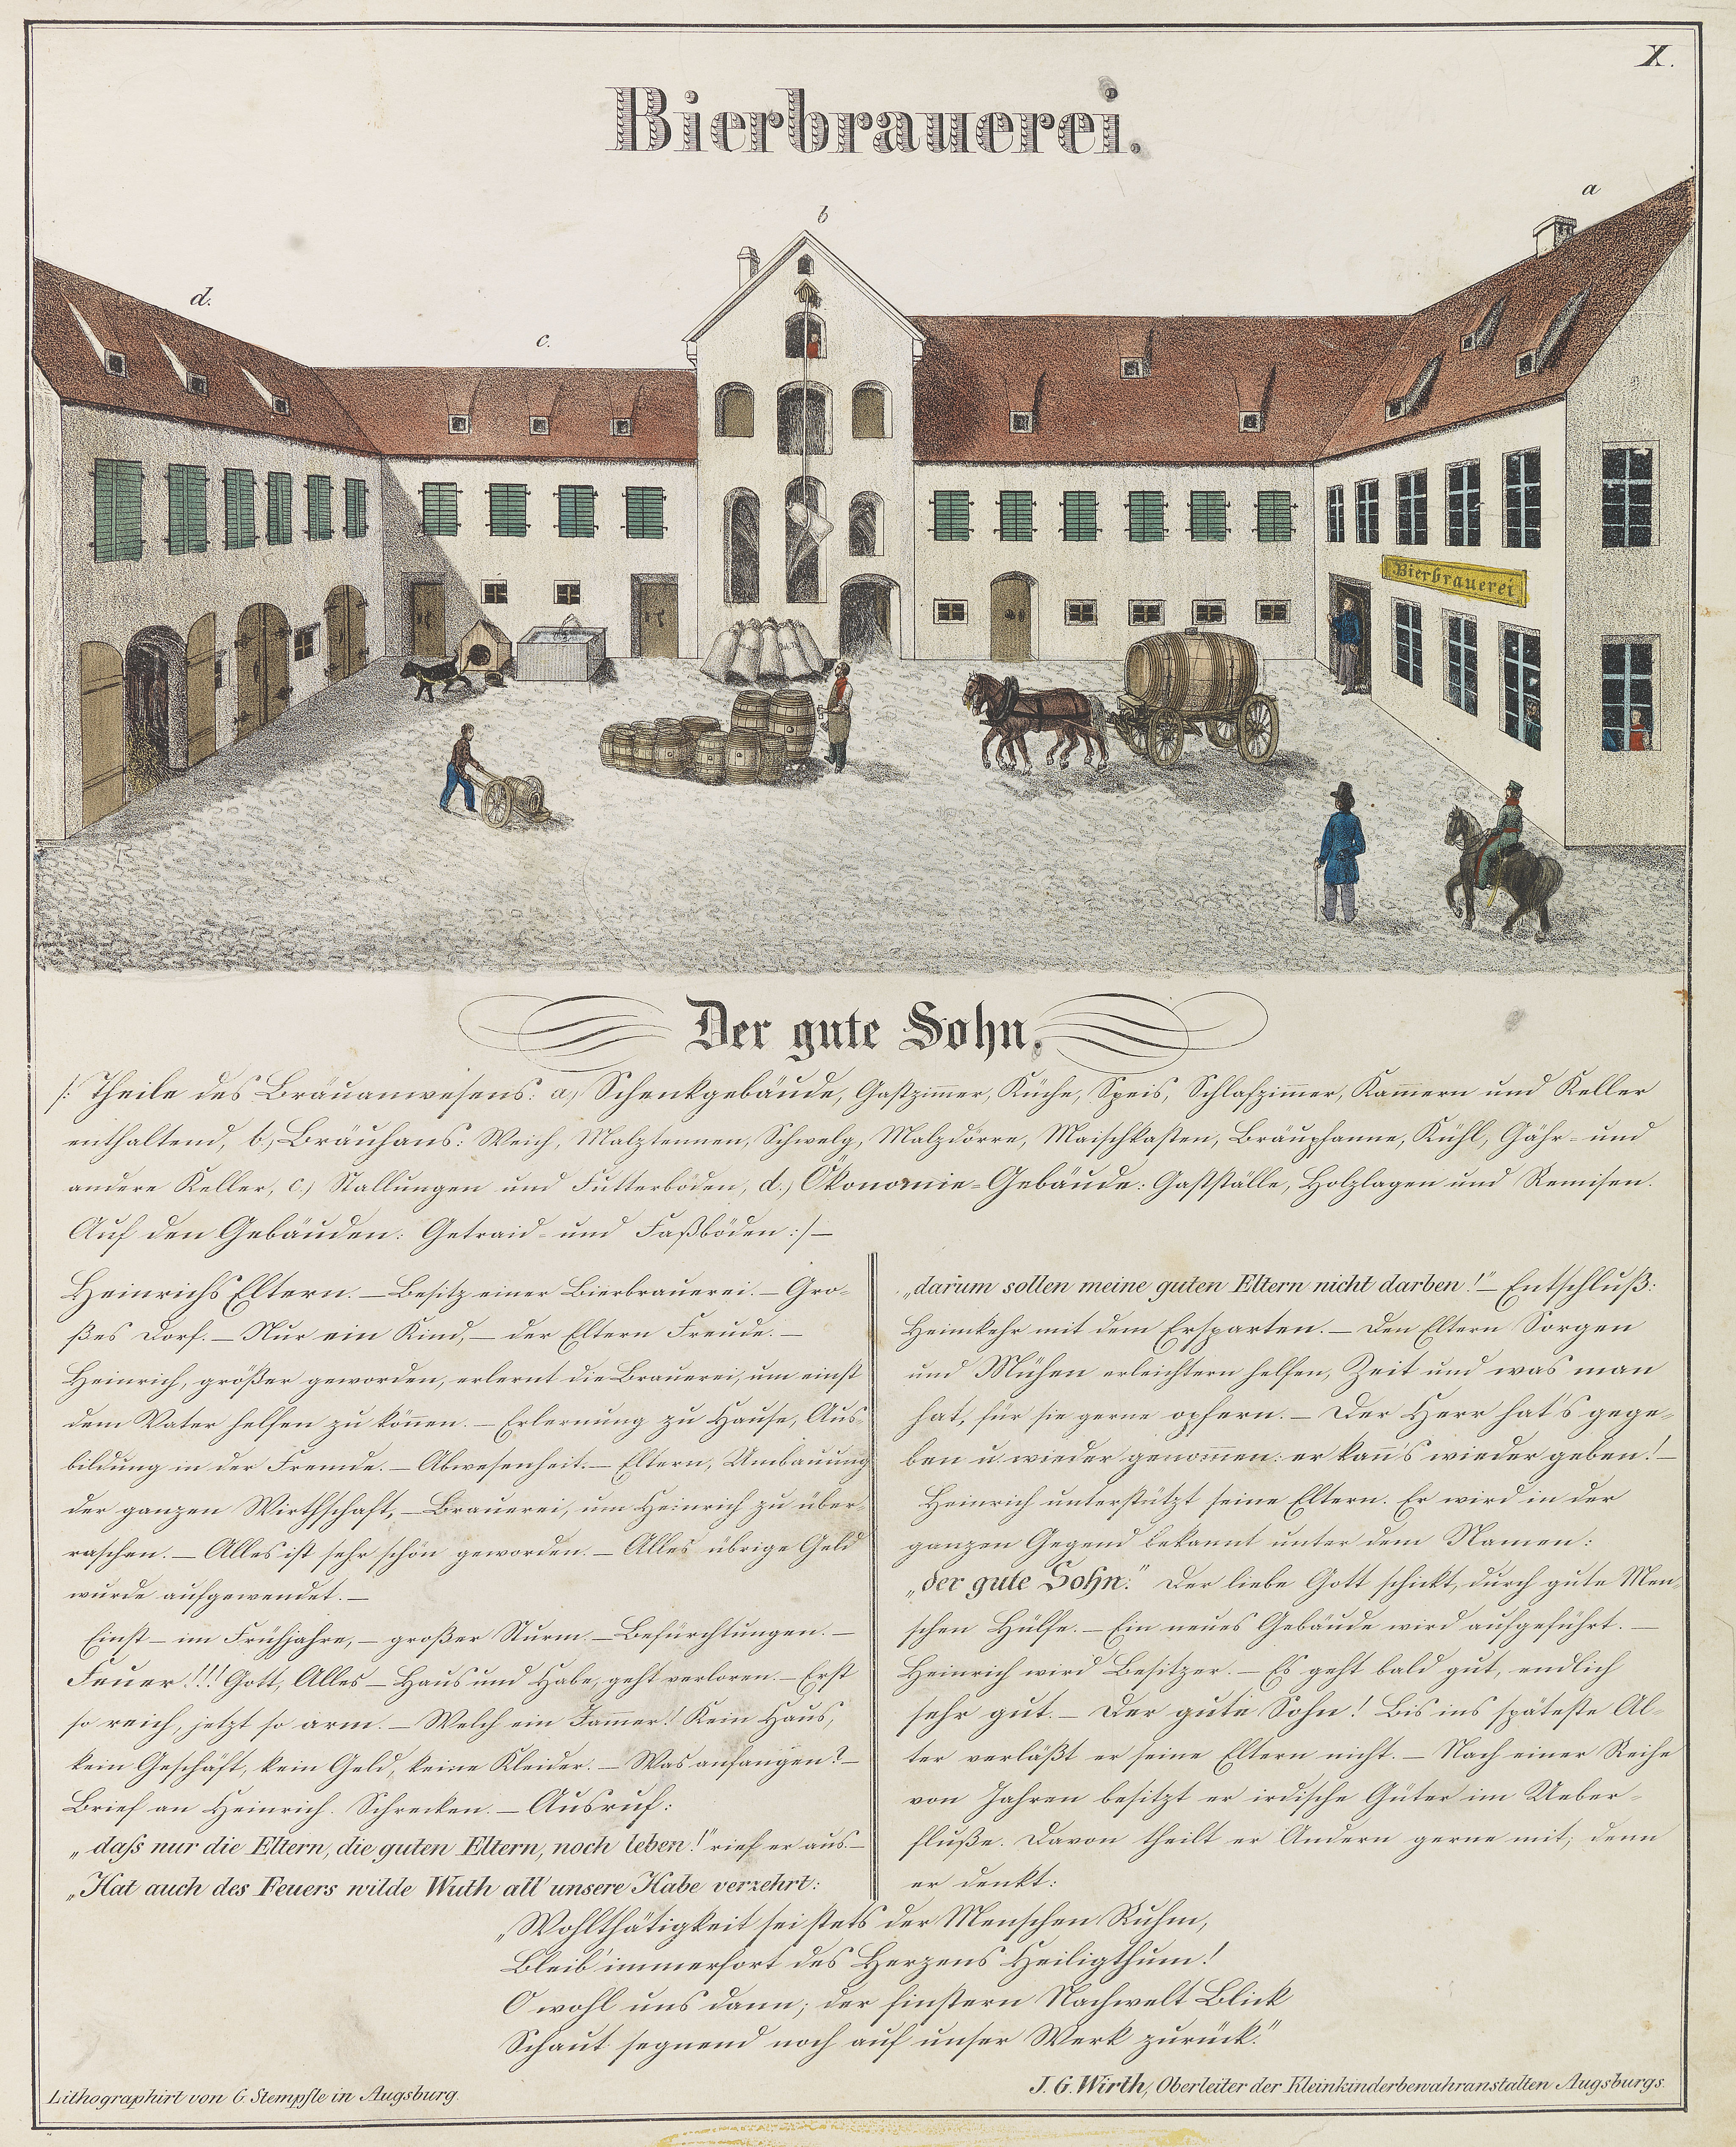 X.
Bierbrauerei.
a
b
d.
c.
Bierbrauerei
Der gute Sohn.
/: Theile des Bräuanwesens: a.) Schenkgebäude, Gastzim̄er, Küche, Speis, Schlafzim̄er, Kam̄ern und Keller
enthaltend, b.) Bräuhaus: Weich, Malztennen, Schwelg, Malzdörre, Maischkasten, Bräupfanne, Kühl, Gähr- und
andere Keller, c.) Stallungen und Futterböden, d.) Ökonomie-Gebäude: Gastställe, Holzlagen und Remisen.
Auf den Gebäuden: Getraid- und Faßböden :/ —
Heinrichs Eltern. — Besitz einer Bierbrauerei. — Gro-
ßes Dorf. — Nur ein Kind, — der Eltern Freude. —
Heinrich, größer geworden, erlernt die Brauerei, um einst
dem Vater helfen zu kön̄en. — Erlernung zu Hause, Aus-
bildung in der Fremde. — Abwesenheit. — Eltern, Umbauung
der ganzen Wirthschaft, — Brauerei, um Heinrich zu über-
raschen. — Alles ist sehr schön geworden. — Alles übrige Geld
wurde aufgewendet. —
Einst — im Frühjahre, — großer Sturm. — Befürchtungen. —
Feuer!!! Gott, Alles — Haus und Habe, geht verloren. — Erst
so reich, jetzt so arm. — Welch ein Jam̄er! Kein Haus,
kein Geschäft, kein Geld, keine Kleider. — Was anfangen? —
Brief an Heinrich. Schrecken. — Ausruf:
„daſs nur die Eltern, die guten Eltern, noch leben!" rief er aus. —
„Hat auch des Feuers wilde Wuth all' unsere Habe verzehrt:
„darum sollen meine guten Eltern nicht darben!" — Entschluß:
Heimkehr mit dem Ersparten. — Den Eltern Sorgen
und Mühen erleichtern helfen, Zeit und was man
hat, für sie gerne opfern. — Der Herr hat's gege-
ben u. wieder genom̄en: er kan̄'s wieder geben! —
Heinrich unterstützt seine Eltern. Er wird in der
ganzen Gegend bekannt unter dem Namen:
„der gute Sohn." Der liebe Gott schickt, durch gute Men-
schen Hülfe. — Ein neues Gebäude wird aufgeführt. —
Heinrich wird Besitzer. — Es geht bald gut, endlich
sehr gut. — Der gute Sohn! Bis ins späteste Al-
ter verläßt er seine Eltern nicht. — Nach einer Reihe
von Jahren besitzt er irdische Güter im Ueber-
fluße. Davon theilt er Andern gerne mit; denn
er denkt:
„Wohlthätigkeit sei stets der Menschen Ruhm,
Bleib' immerfort des Herzens Heiligthum!
O wohl uns dann; der finstern Nachwelt Blick
Schaut segnend noch auf unser Werk zurück."
Lithographirt von G. Stempfle in Augsburg.
J. G. Wirth, Oberleiter der Kleinkinderbewahranstalten Augsburgs.